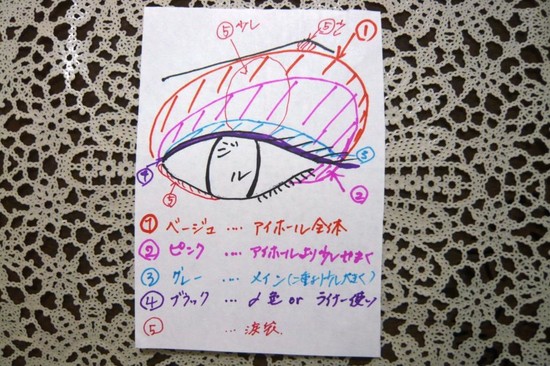 ⑤少し
⑤少し
①
ジ
ル
③
④
⑤
②
① ベージュ … アイホール全体
② ピンク … アイホールより少しせまく
③ グレー … メイン
④ ブラック … 〆色 or ライナー使い
⑤ … 涙袋